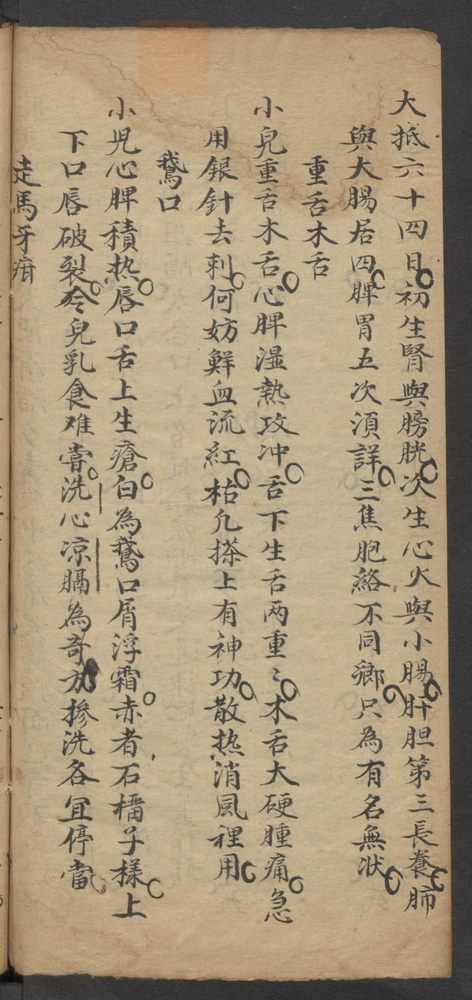 大抵六十四日初生腎與膀胱次生心火與小腸肝胆第三長養肺
與大腸居四脾胃五次湏詳三焦胞絡不同鄉只為有名無狀
重舌木舌
小兒重舌木舌心脾湿熱攻冲舌下生舌两重〻木舌大硬腫痛急
用銀針去刺何妨鮮血流紅枯凢搽上有神功散热消風裡用
鵞口
小児心脾積热唇口舌上生瘡白為鵞口屑浮霜赤者石橊子樣上
下口唇破裂令兒乳食难甞洗心凉膈為奇方掺洗各冝停當
走馬牙疳